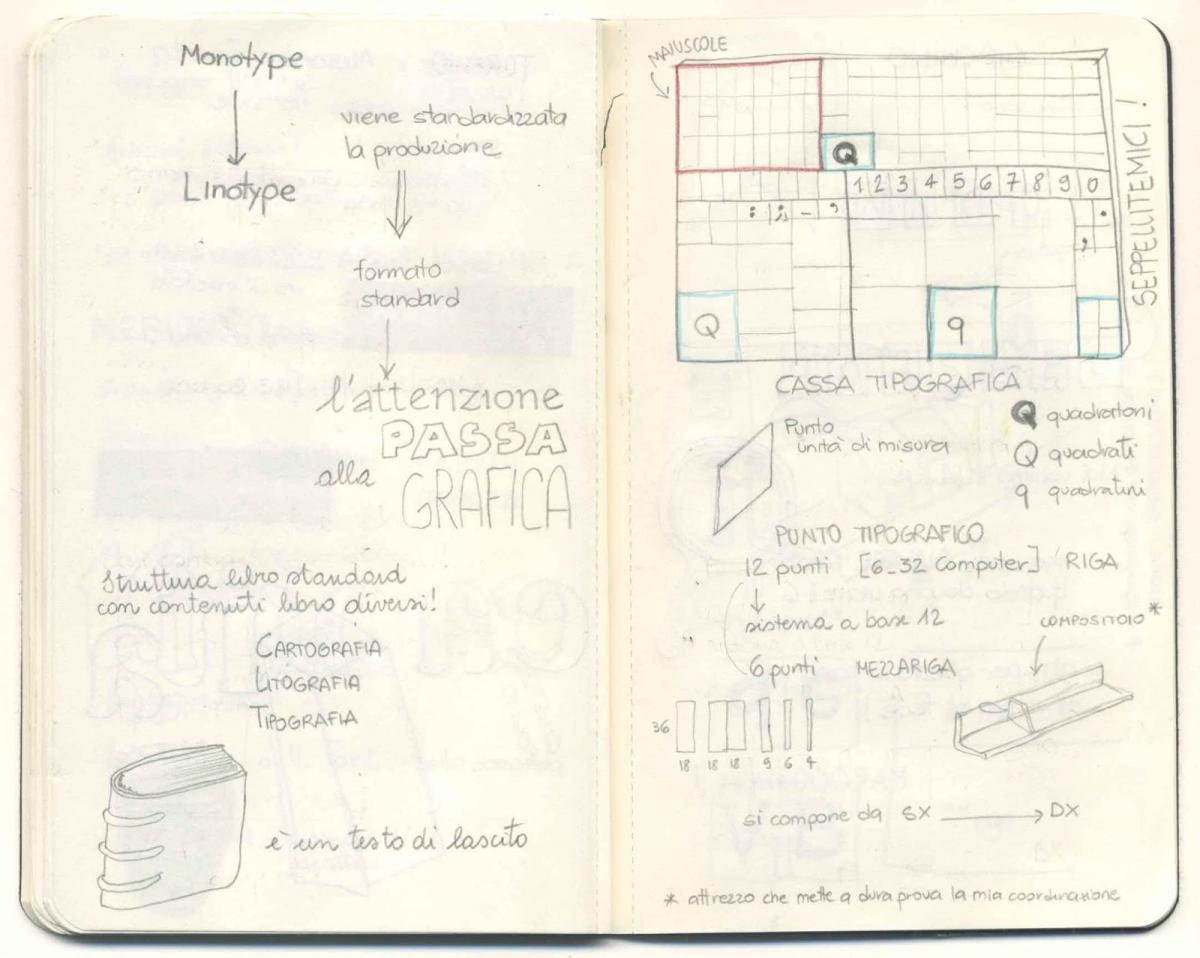 Monotype
Linotype
viene standardizzata
la produzione
formato
standard
l'attenzione
PASSA
alla
GRAFICA
Struttura libro standard
con contenuti libro diversi!
CARTOGRAFIA
LITOGRAFIA
TIPOGRAFIA
è un testo di lascito
MAIUSCOLE
Q
1 2 3 4 5 6 7 8 9 0
: ; - ' .
,
Q
q
SEPPELLITEMICI!
CASSA TIPOGRAFICA
Punto
unità di misura
Q quadratoni
Q quadrati
q quadratini
PUNTO TIPOGRAFICO
12 punti [6_32 Computer] RIGA
sistema a base 12
COMPOSITOIO*
6 punti MEZZARIGA
36
18 18 18 9 6 4
si compone da SX DX
* attrezzo che mette a dura prova la mia coordinazione